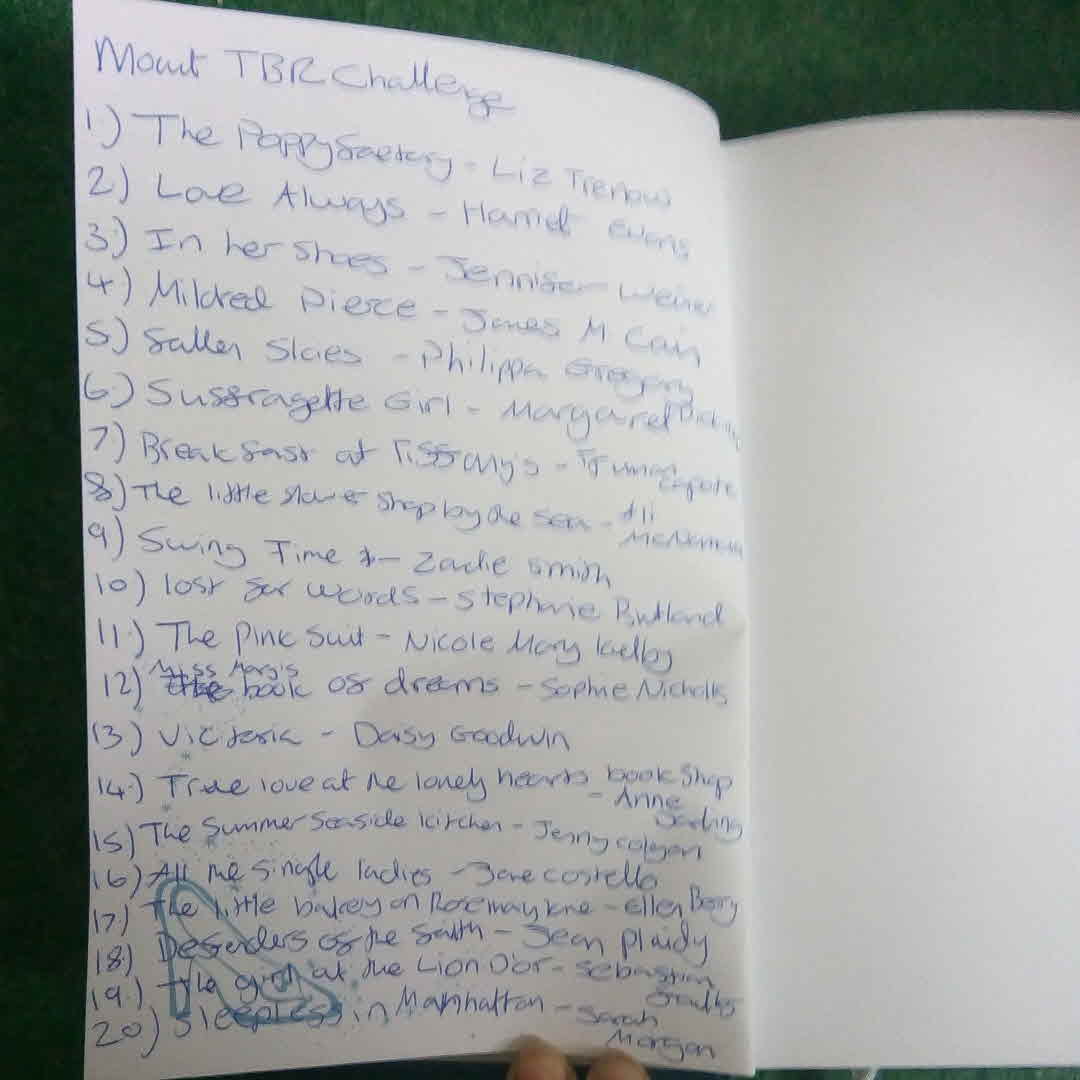 Mount TBR Challenge
1) The Poppy factory - Liz Trenow
2) Love Always - Harriet Evans
3) In her shoes - Jennifer Weiner
4) Mildred Pierce - James M Cain
5) fallen skies - Philippa Gregory
6) Suffragette Girl - Margaret
7) Breakfast at Tiffany's - Truman
Capote
8) The little flower shop by the sea - Ali
McNamara
9) Swing Time - Zadie Smith
10) lost for words - Stephanie Butland
11) The Pink Suit - Nicole Mary Kelby
Miss Mary's
12) the book of dreams - Sophie Nicholls
13) Victoria - Daisy Goodwin
14) True love at the lonely hearts bookshop
- Annie
Darling
15) The Summer Seaside kitchen - Jenny Colgan
16) All the single ladies - Jane Costello
17) The little bakery on Rosemary lane - Ellen Berry
18) Defenders of the faith - Jean Plaidy
19) The girl at the Lion D'or - Sebastian
Faulks
20) Sleepless in Manhattan - Sarah
Morgan